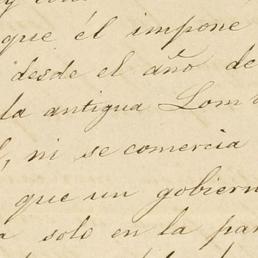 que él impone
desde el año de
la antigua Lom
, ni se comercia
que un gobiern
a solo en la par